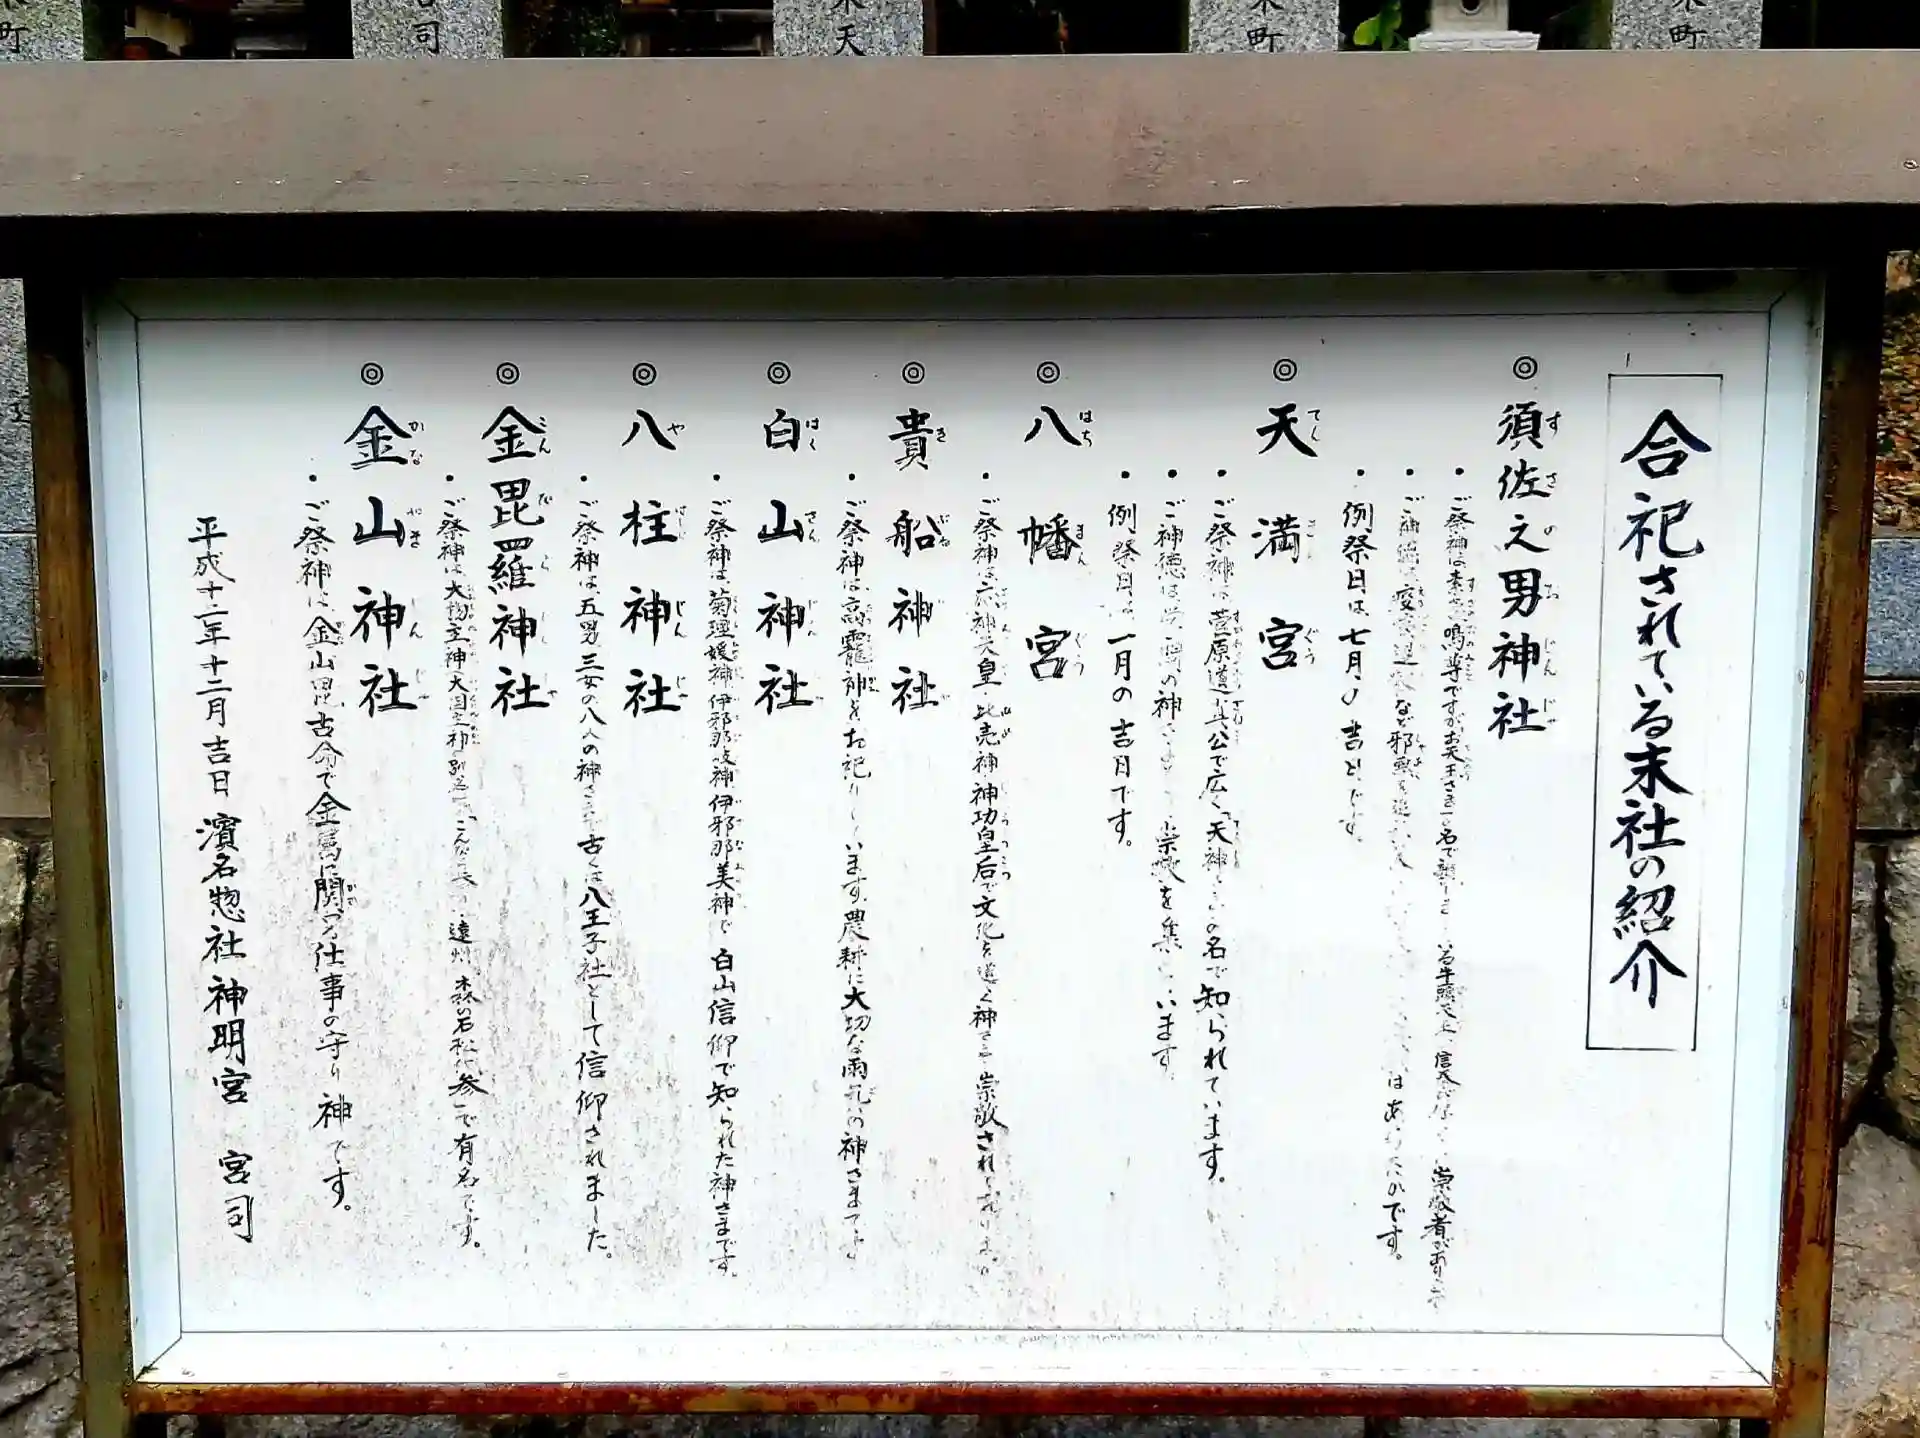 合祀されている末社の紹介
◎須佐之男神社
すさのおじんじゃ
・ご祭神は素 鳴尊ですがお天王さま 名で親し いる牛頭天王 信 崇敬者があり
・ご神徳 疫 など邪 はあ です。
・例祭日は、七月の吉日です。
◎天満宮
てんまんぐう
・ご祭神は、菅原道真公で広く「天神さま」の名で知られています。
・ご神徳は学問の神さまとして崇敬を集めています。
・例祭日は、一月の吉日です。
◎八幡宮
はちまんぐう
・ご祭神は応神天皇・比売神・神功皇后で文化を導く神さま 崇敬されております。
◎貴船神社
きふねじんじゃ
・ご祭神は、高龗神をお祀りしています。農耕に大切な雨 の神さまです。
◎白山神社
はくさんじんじゃ
・ご祭神は、菊理媛神、伊邪那岐神、伊邪那美神で、白山信仰で知られた神さまです。
◎八柱神社
やはしらじんじゃ
・ご祭神は五男三女の八人の神さまで、古くは八王子社として信仰されました。
◎金毘羅神社
こんぴらじんじゃ
・ご祭神は、大物主神(大国主神の別名) 遠州 森の石松代参で有名です。
◎金山神社
かなやまじんじゃ
・ご祭神は、金山毘古命で金属に関る仕事の守り神です。
平成十二年十二月吉日 濱名惣社神明宮 宮司
町
司
天
町
町